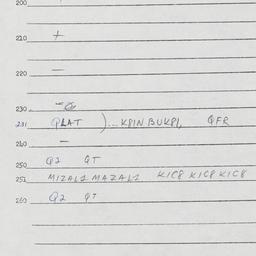 200
210 +
220 —
230 —
231 QLAT )... KPIN BUKPI, QFR
240 —
250 Q2 QT
251 MIZAL1 MAZAL1 KICP KICP KICP
260 Q2 QT